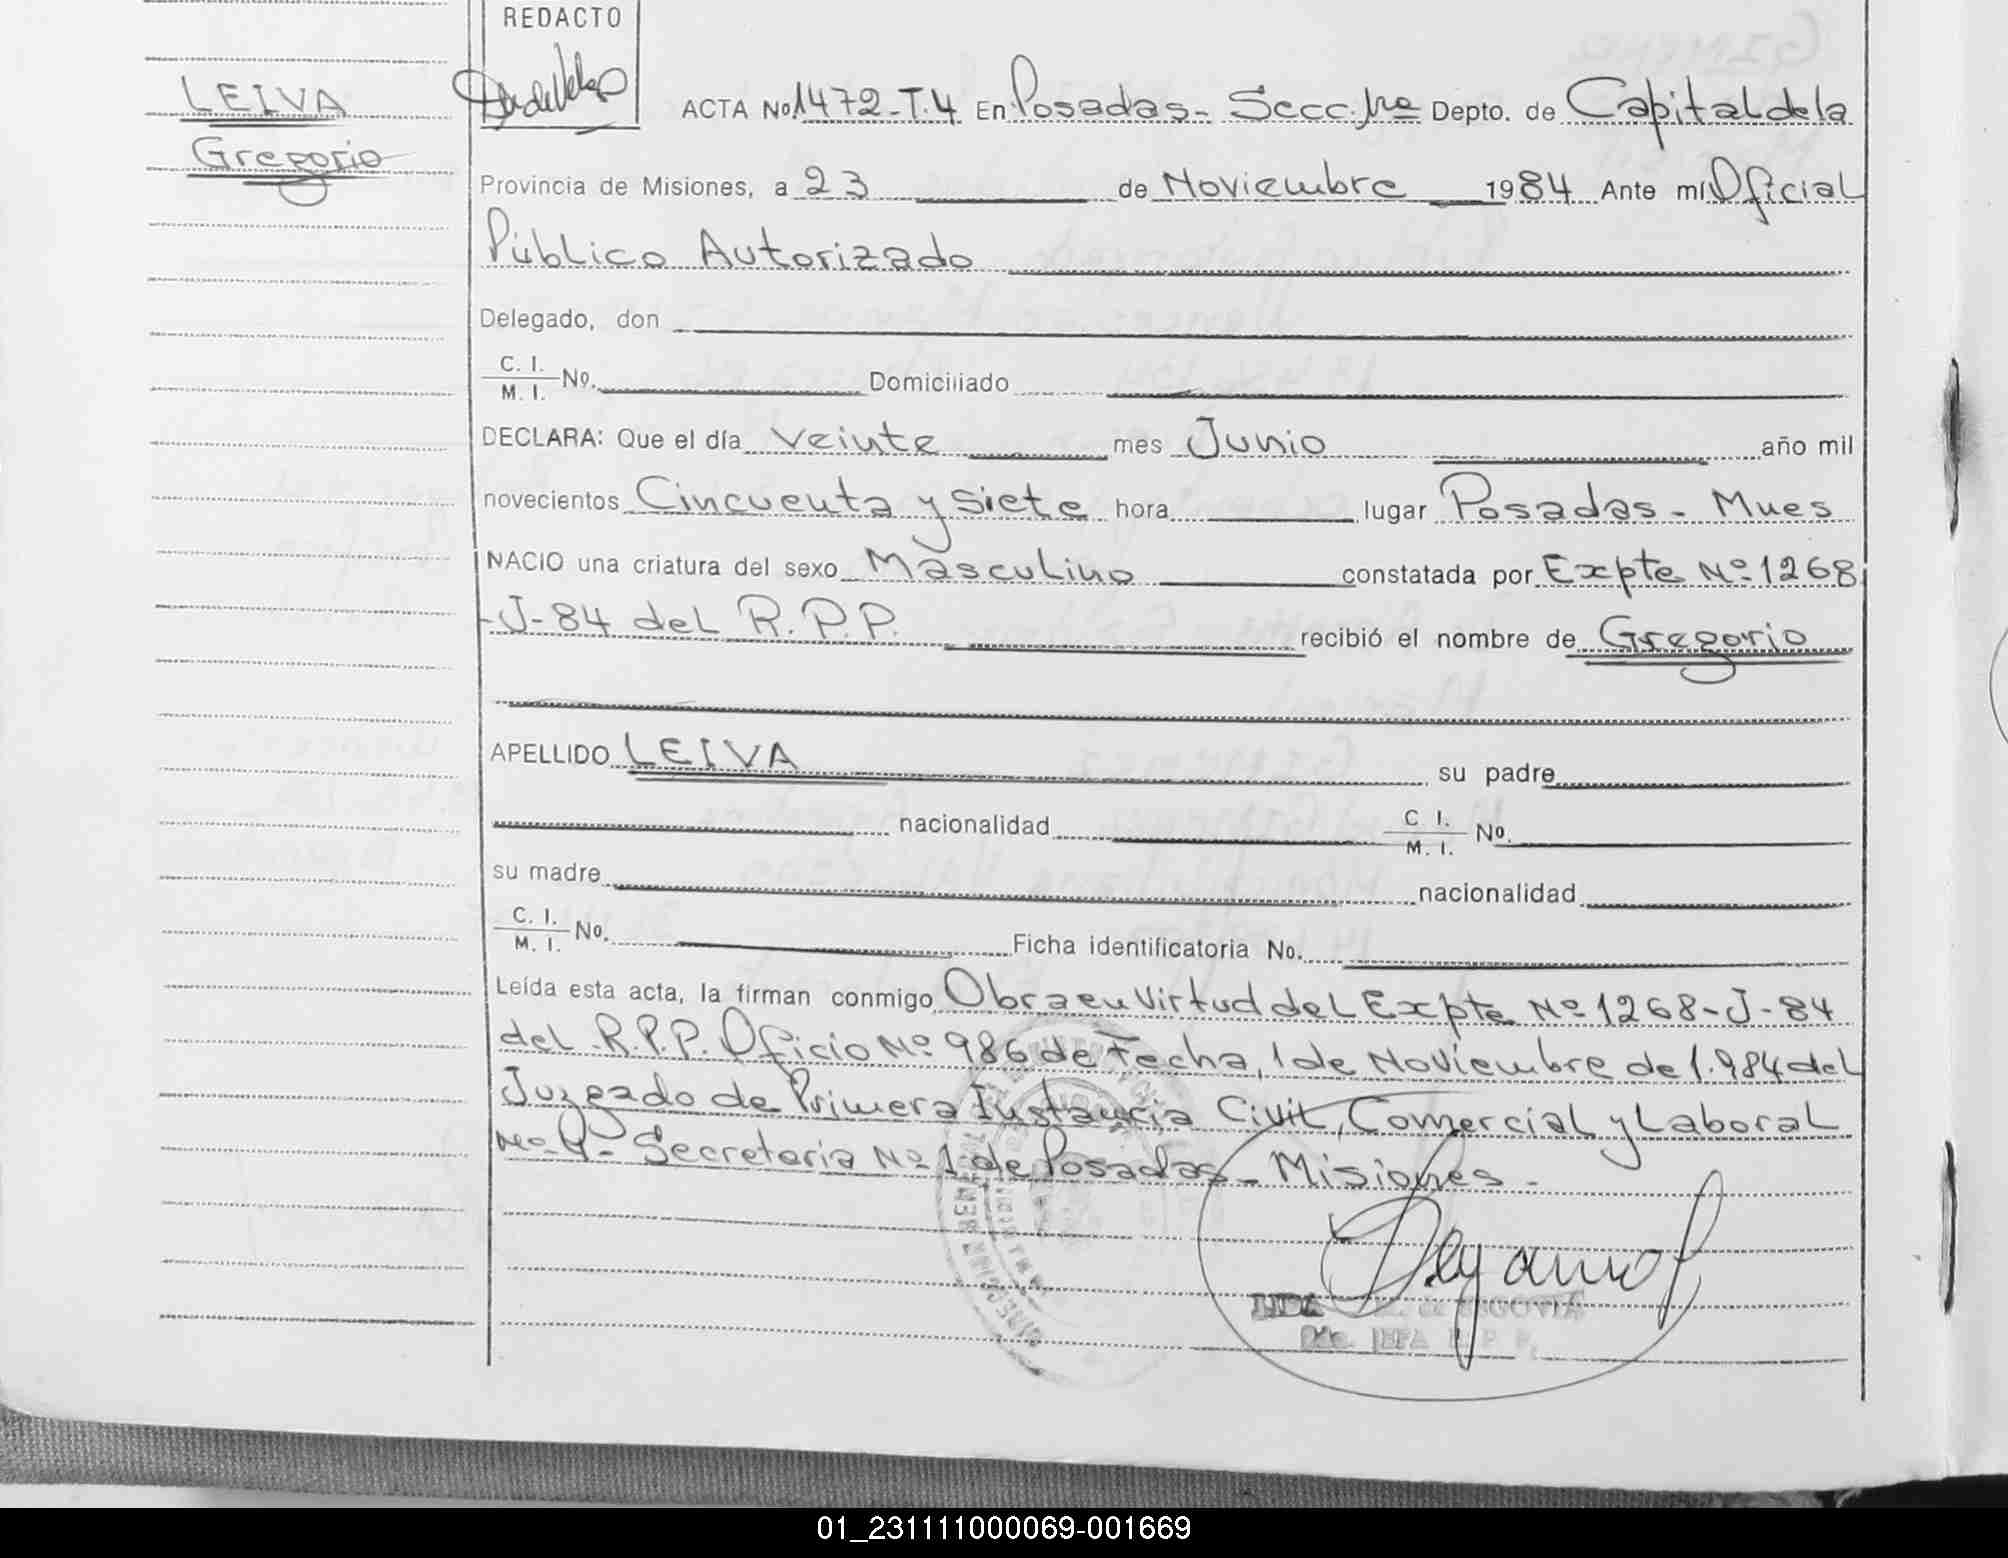 REDACTO
LEIVA
Gregorio
ACTA No 1472-T.4 En Posadas- Secc. 1ra Depto. de Capital de la
Provincia de Misiones, a 23 de Noviembre 1984 Ante mí Oficial
Público Autorizado
Delegado, don
C. I.
M. I. No. Domiciliado
DECLARA: Que el día veinte mes Junio año mil
novecientos Cincuenta y siete hora lugar Posadas - Mnes
NACIO una criatura del sexo Masculino constatada por Expte Nº 1268
-J-84 del R.P.P. recibió el nombre de Gregorio
APELLIDO LEIVA su padre
nacionalidad C. I.
M. I. No.
su madre nacionalidad
C. I.
M. I. No. Ficha identificatoria No.
Leída esta acta, la firman conmigo Obra en Virtud del Expte Nº 1268-J-84
del R.P.P. Oficio Nº 986 de Fecha, 1 de Noviembre de 1.984 del
Juzgado de Primera Instancia Civil, Comercial y Laboral
Nº 4- Secretaria Nº 1 de Posadas - Misiones -
LIDA de SEGOVIA
JEFA R. P. P.
01_231111000069-001669